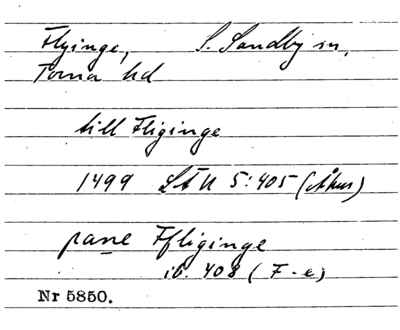 Flyinge, S. Sandby sn,
Torna hd
till Fliginge
1499 LÅU 5:405 (Åhus)
pane Ffliginge
ib. 408 (F-e)
Nr 5850.